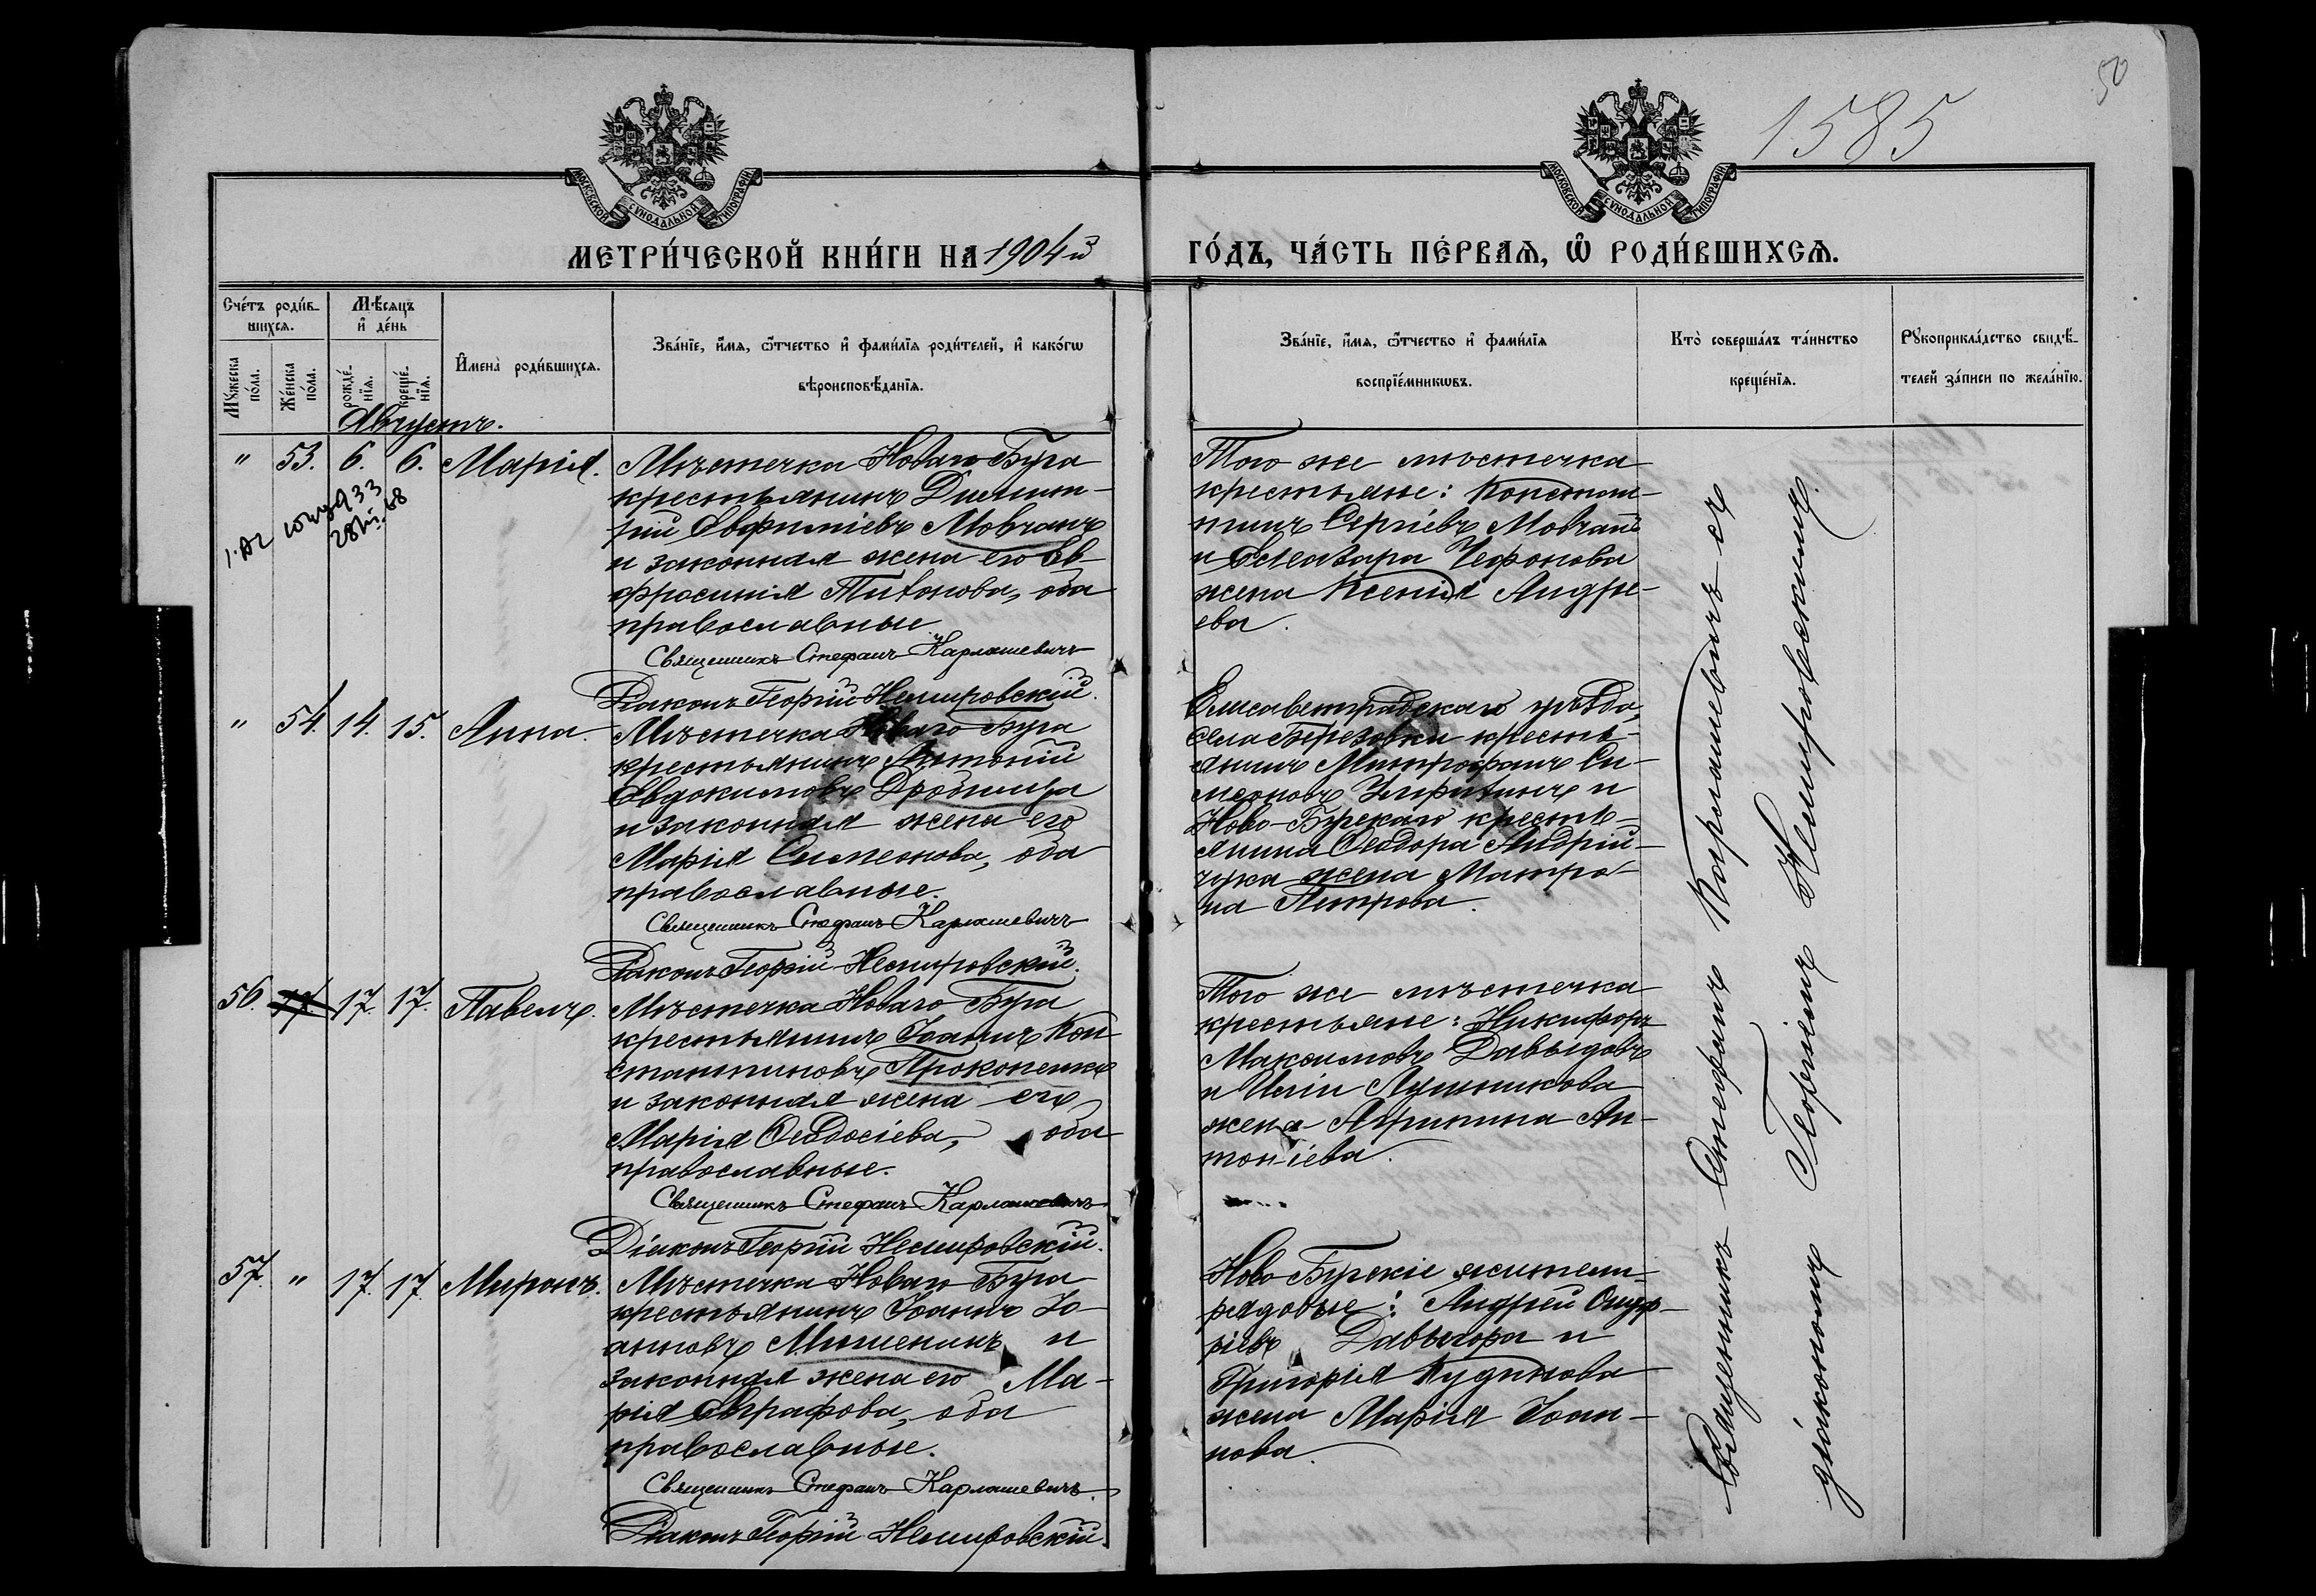 50
1585
МОСКОВСКОЙ СѴНОДАЛЬНОЙ ТИПОГРАФІИ
МОСКОВСКОЙ СѴНОДАЛЬНОЙ ТИПОГРАФІИ
МЕТРИ́ЧЕСКОЙ КНИ́ГИ НА 1904й
ГО́ДЪ, ЧА́СТЬ ПЕ́РВАѦ, Ѡ҆ РОДИ́ВШИХСѦ.
Сче́тъ роди́в-
шихсѧ.
Мѣ́сѧцъ
и҆ де́нь
Мꙋ́жеска
по́ла.
Же́нска
по́ла.
рожде́-
нїѧ.
креще́-
нїѧ.
И҆мена̀ роди́вшихсѧ.
Зва́нїе, и҆́мѧ, ѻ҆́тчество и҆ фами́лїѧ роди́телей, и҆ како́гѡ
вѣроисповѣ́данїѧ.
Зва́нїе, и҆́мѧ, ѻ҆́тчество и҆ фами́лїѧ
воспрїе́мникѡвъ.
Кто̀ соверша́лъ та́инство
креще́нїѧ.
Рꙋкоприкла́дство свидѣ́-
телей за́писи по жела́нїю.
Августъ.
" 53. 6. 6. Марія.
Мѣстечка Новаго Буга
крестьянинъ Димит-
рій Евфиміевъ Мовчанъ
и законная жена его Ев-
фросинія Титонова, оба
православные.
Священникъ Стефанъ Карлашевичъ
Діаконъ Георгій Немировскій.
Того же мѣстечка
крестьяне: Констан-
тинъ Сергіевъ Мовчанъ
и Елеазара Чефонова
жена Ксенія Андре-
ева.
" 54. 14. 15. Анна.
Мѣстечка Новаго Буга
крестьянинъ Антоній
Евдокимовъ Дробница
и законная жена его
Марія Симеонова, оба
православные.
Священникъ Стефанъ Карлашевичъ
Діаконъ Георгій Немировскій.
Елисаветградскаго уѣзда,
села Березовки кресть-
янинъ Митрофанъ Си-
меоновъ и
Ново-Бугскаго кресть-
янина Ѳеодора Андрій-
чука жена Матро-
на Петрова.
56. 17. 17. Павелъ.
Мѣстечка Новаго Буга
крестьянинъ Іоаннъ Кон-
стантиновъ Прокопенко
и законная жена его
Марія Ѳеодосіева, оба
православные.
Священникъ Стефанъ Карлашевичъ
Діаконъ Георгій Немировскій.
Того же мѣстечка
крестьяне: Никифоръ
Максимовъ Давыдовъ
и Иліи Лушникова
жена Агрипина Ан-
тоніева.
57. " 17. 17. Миронъ.
Мѣстечка Новаго Буга
крестьянинъ Іоаннъ Іо-
анновъ Мишенинъ и
законная жена его Ма-
рія Евграфова, оба
православные.
Священникъ Стефанъ Карлашевичъ.
Діаконъ Георгій Немировскій.
Ново-Бугскіе жители
рядовые: Андрей Онуф-
ріевъ Давыгора и
Григорія Кудинова
жена Марія Іоан-
нова.
Священникъ Стефанъ Карлашевичъ съ
діакономъ Георгіемъ Немировскимъ.